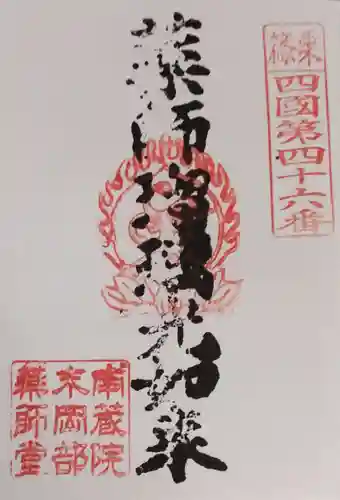 篠栗
四國第四十六番
薬師瑠璃光如来
南蔵院
末岡部
薬師堂